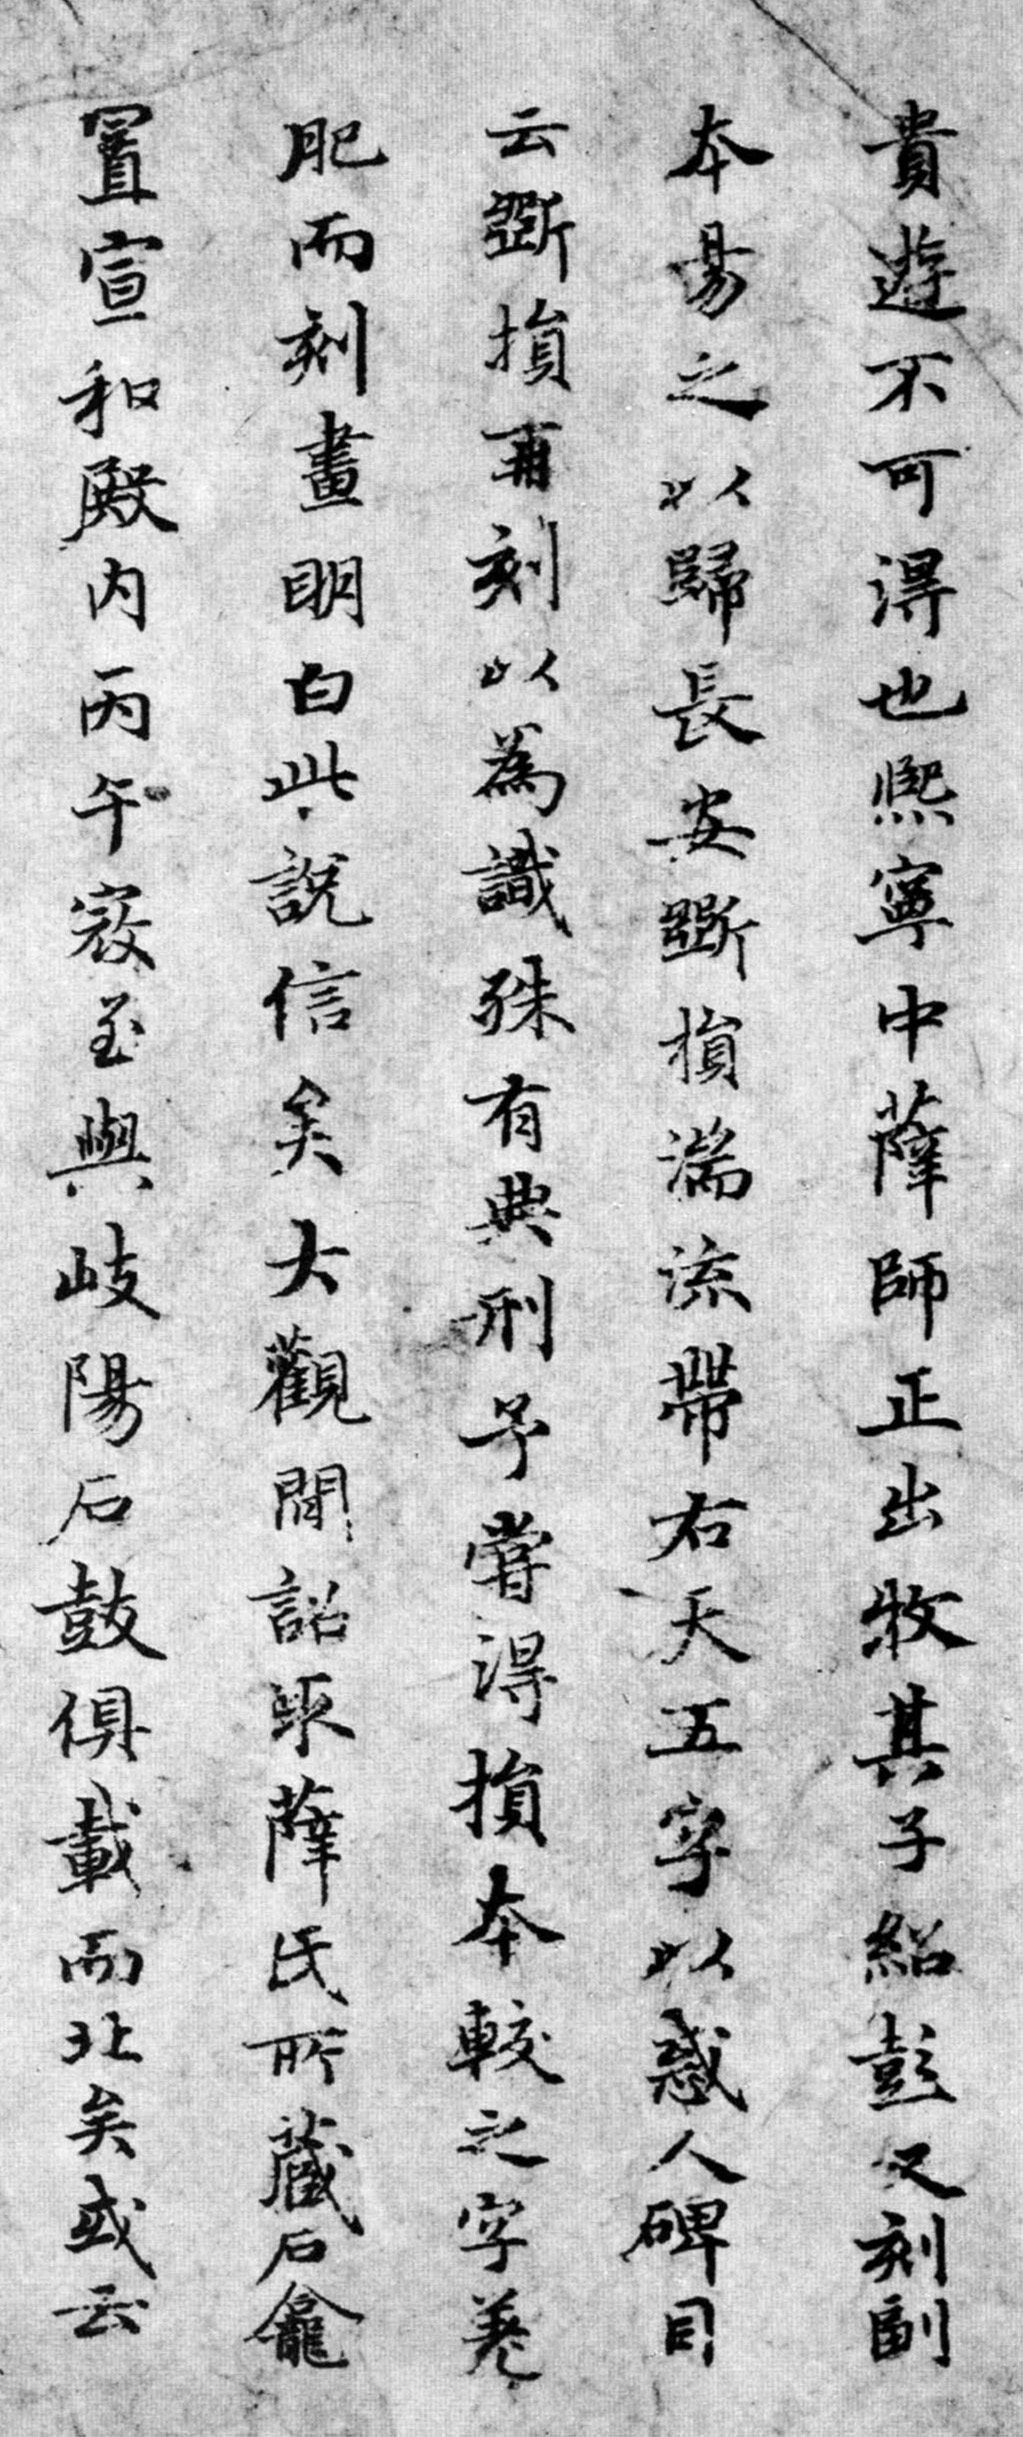 貴遊不可得也熙寧中薛師正出牧其子紹彭又刻副
本易之以歸長安斲損湍流帶右天五字以惑人碑目
云斲損再刻以為識殊有典刑予嘗得損本較之字差
肥而刻畫明白此說信矣大觀間詔取薛氏所藏石龕
置宣和殿内丙午寇至與岐陽石鼓俱載而北矣或云